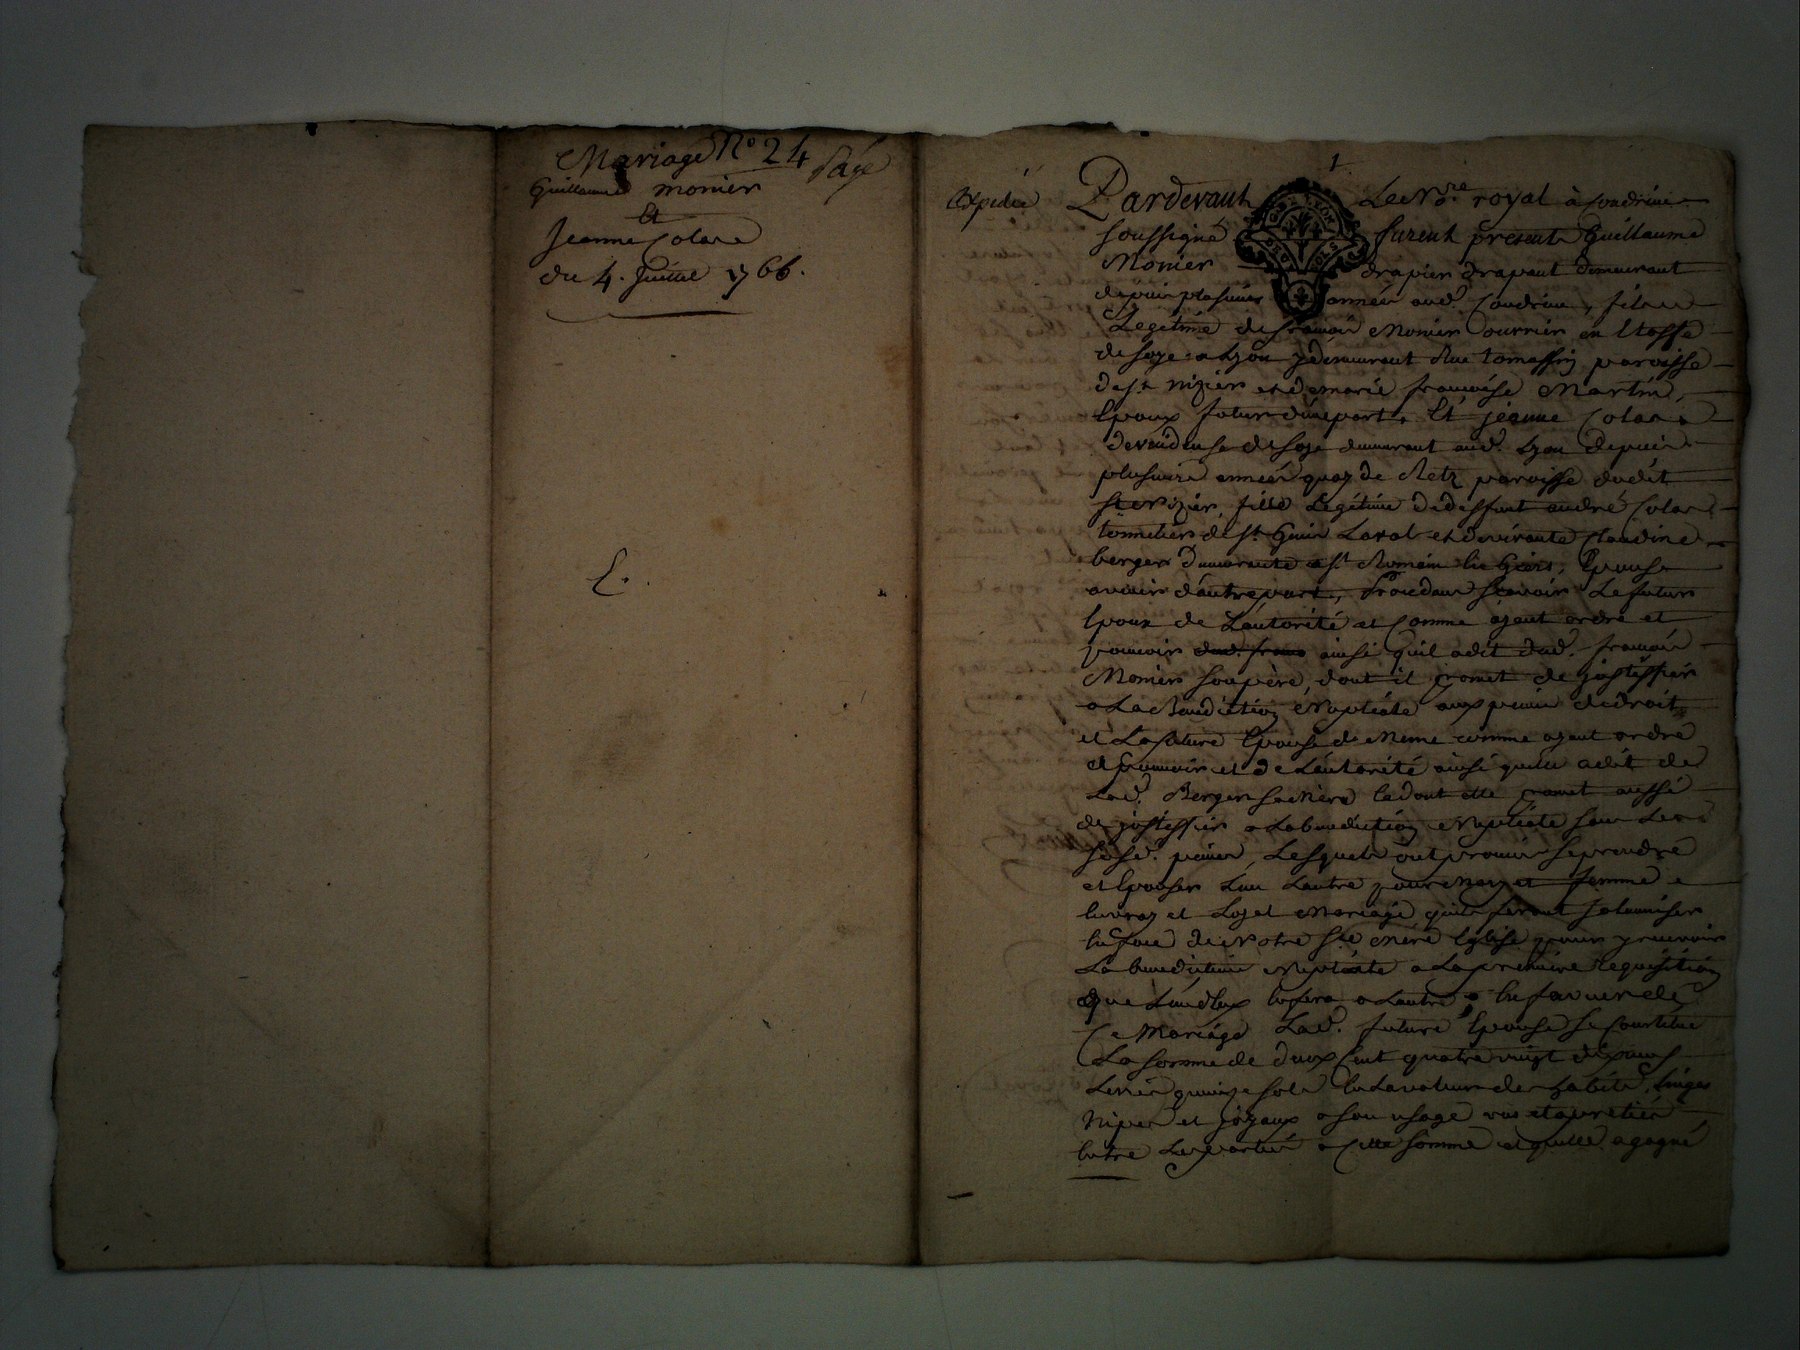 Mariage N° 24 Payé
Guillaume monier
Et
Jeanne Colas
du 4. Juillet 1766.
L.
1
Expedié
Pardevant Le No.re royal à Condrieu
soussigné furent presents Guillaume
Monier drapier drapant demeurant
depuis plusieurs années aud. Condrieu, fils
Legitime de françois Monier ouvrier en Etoffe
de soye a Lyon y demeurant Rue tomassin paroisse
de st nizier et de marie françoise Martin,
Epoux futur d'une part, Et jeanne Colas
devideuse de soye demeurant aud. Lyon depuis
plusieurs années quay de Retz paroisse dudit
st Nizier, fille Legitime de deffunt andré Colas
tonnelier de st Genis Laval et de vivante Claudine
berger demeurante a st Romain en Giers, Epouse
avenir d'autre part, Procedans sçavoir Le futur
Epoux de L'autorité et Comme ayant ordre et
pouvoir dud. frans ainsi quil a dit dud. françois
Monier son père, dont il promet de justiffier
a La Benediction Nuptiale aux peines de droit
et La future Epouse de Meme comme ayant ordre
et pouvoir et de Lautorité ainsi quelle a dit de
Lad. Berger sa Mère ce dont elle promet aussi
de justiffier a La benediction Nuptiale sous Les
susd. peines, Lesquels ont promis se prendre
et Epouser L'un Lautre pour Mary et femme
en vray et Loyal Mariage quils feront solemniser
en face de Notre Ste Mère Eglise pour y recevoir
La benediction Nuptiale a La premiere requisition
que L'un d'Eux en fera a Lautre en faveur de
Ce Mariage Lad. future Epouse se Constitue
La Somme de deux Cent quatre vingt dix neuf
Livres quinze sols en La valeur des habits, linges
Nipes et joyaux a son usage vus et apretiés
Entre Les parties a Cette Somme et quelle a gagné